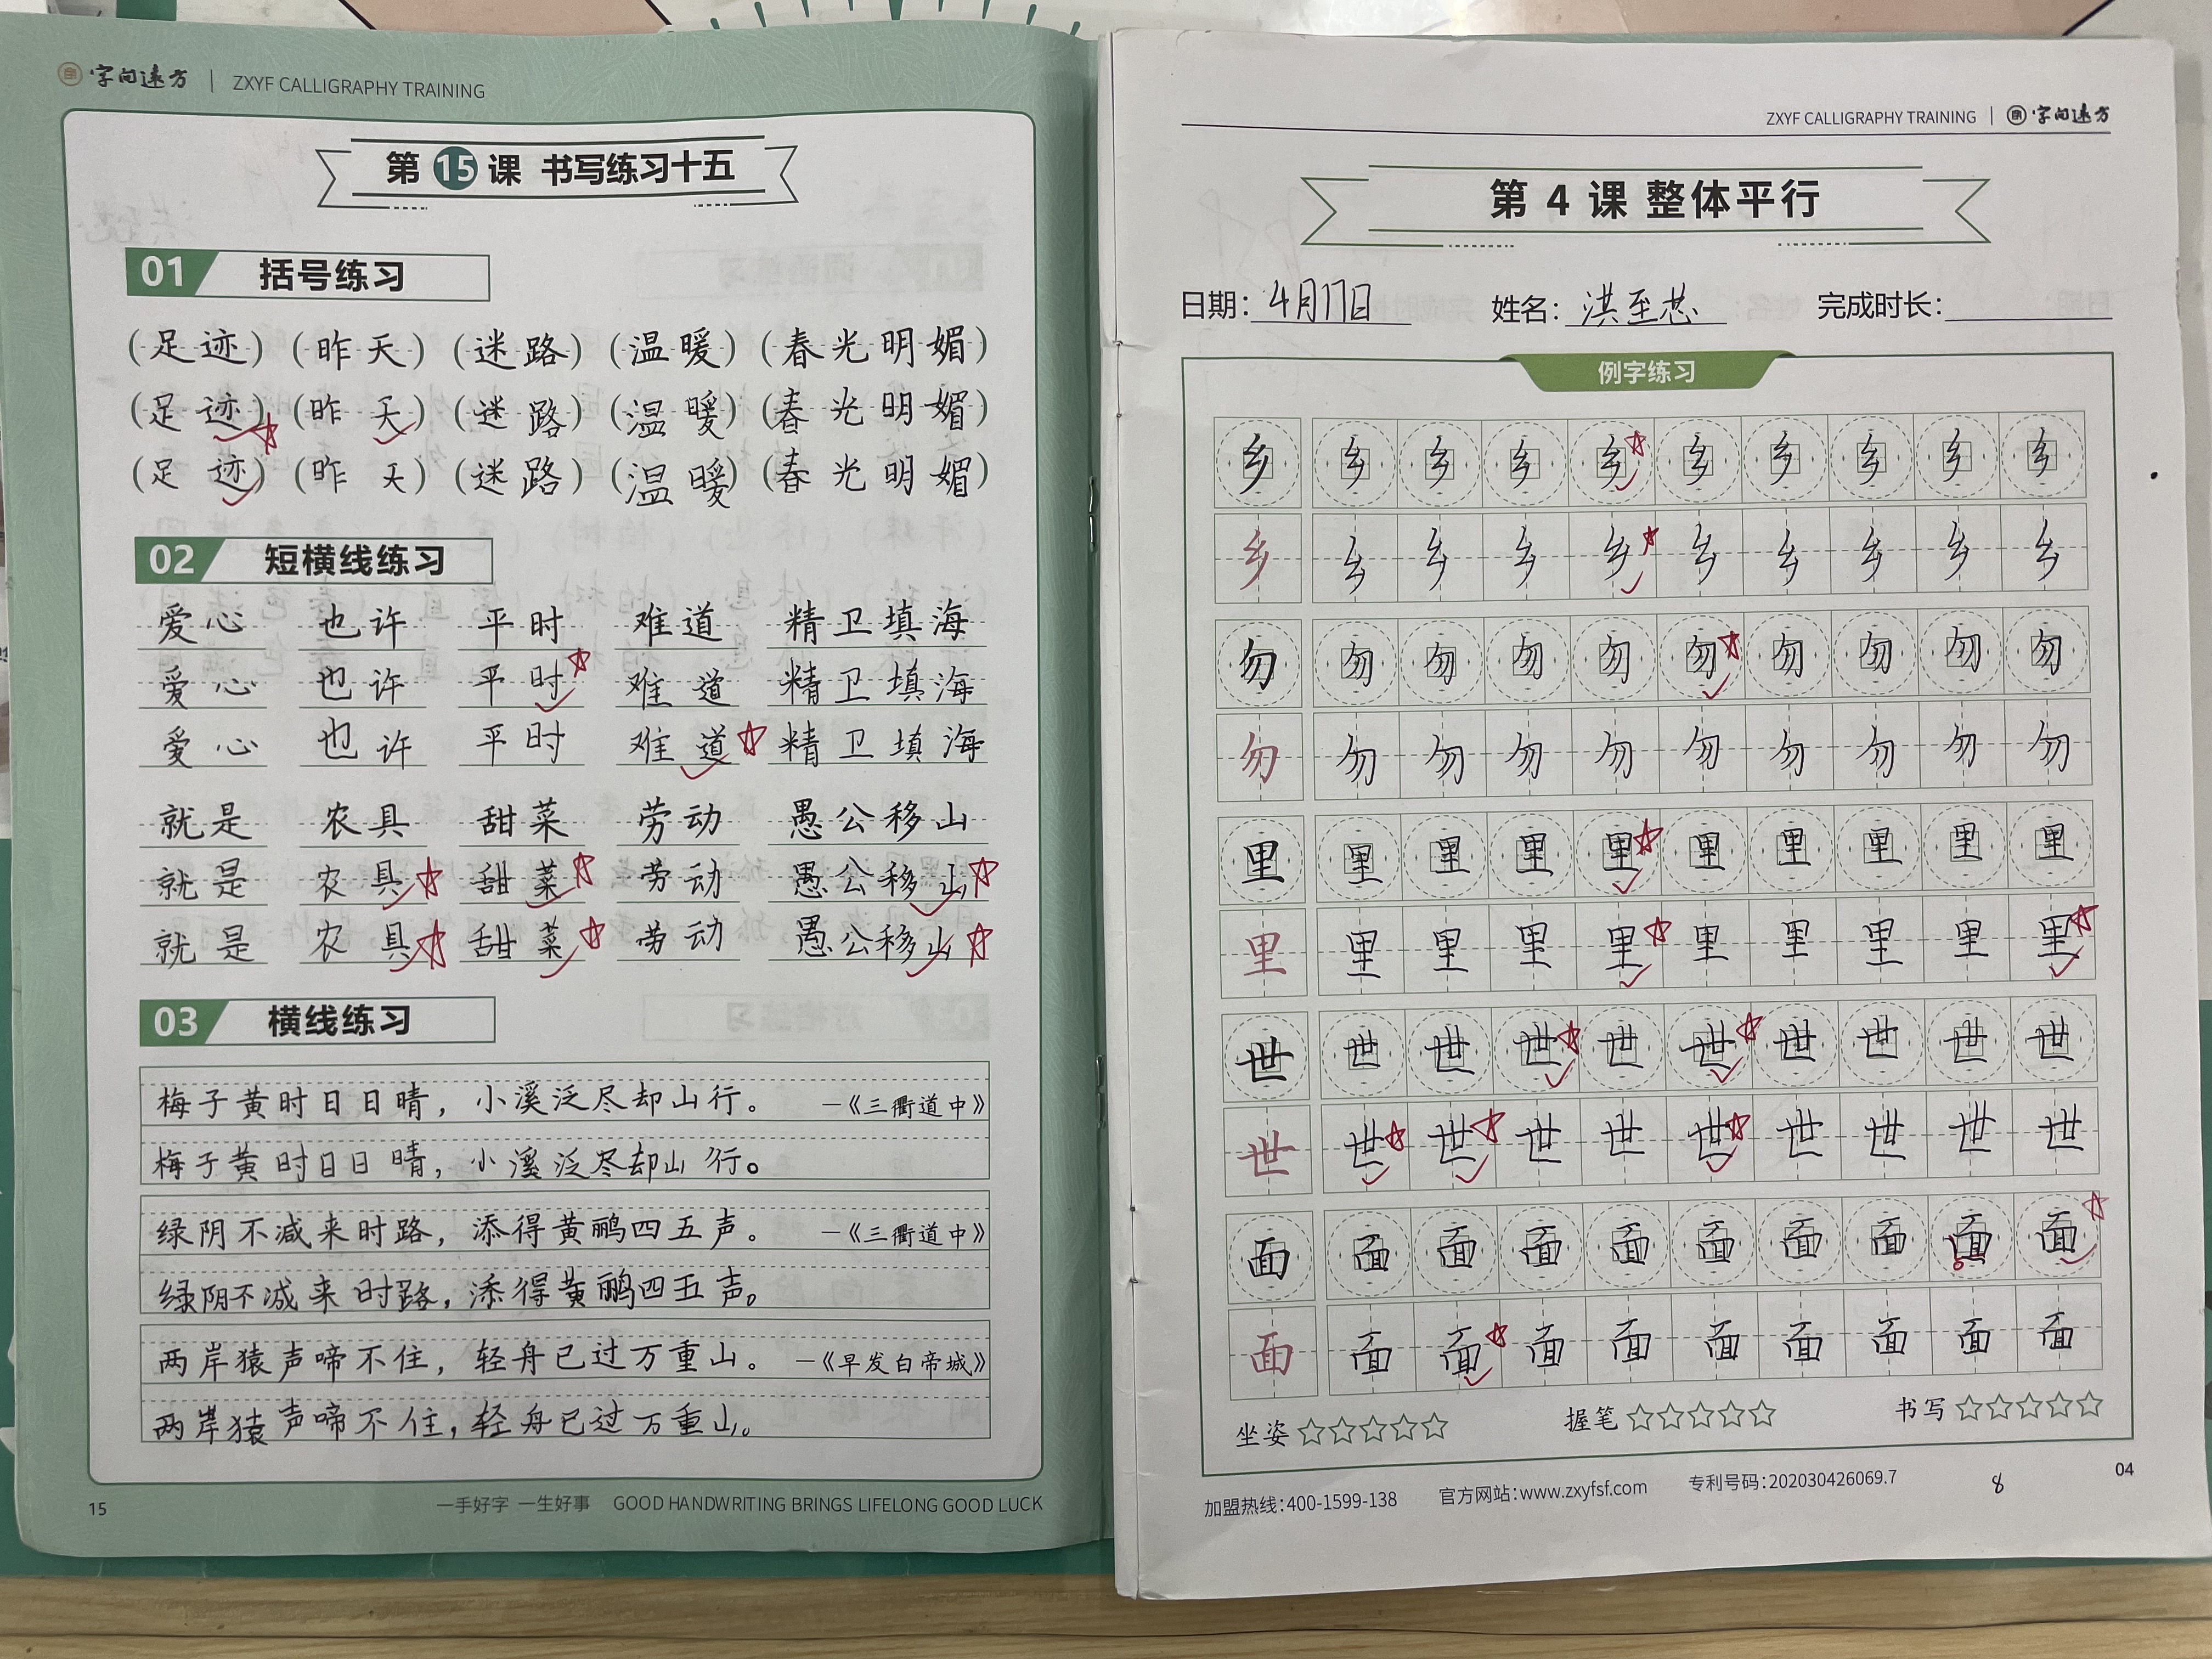 字向远方 | ZXYF CALLIGRAPHY TRAINING
第 15 课 书写练习十五
01 括号练习
(足迹) (昨天) (迷路) (温暖) (春光明媚)
(足迹) (昨天) (迷路) (温暖) (春光明媚)
(足迹) (昨天) (迷路) (温暖) (春光明媚)
02 短横线练习
爱心 也许 平时 难道 精卫填海
爱心 也许 平时 难道 精卫填海
爱心 也许 平时 难道 精卫填海
就是 农具 甜菜 劳动 愚公移山
就是 农具 甜菜 劳动 愚公移山
就是 农具 甜菜 劳动 愚公移山
03 横线练习
梅子黄时日日晴，小溪泛尽却山行。 —《三衢道中》
梅子黄时日日晴，小溪泛尽却山行。
绿阴不减来时路，添得黄鹂四五声。 —《三衢道中》
绿阴不减来时路，添得黄鹂四五声。
两岸猿声啼不住，轻舟已过万重山。 —《早发白帝城》
两岸猿声啼不住，轻舟已过万重山。
15 一手好字 一生好事 GOOD HANDWRITING BRINGS LIFELONG GOOD LUCK
ZXYF CALLIGRAPHY TRAINING | 字向远方
第 4 课 整体平行
日期：4月17日 姓名：洪至 完成时长：
例字练习
乡 乡 乡 乡 乡 乡 乡 乡 乡 乡
乡 乡 乡 乡 乡 乡 乡 乡 乡 乡
勿 勿 勿 勿 勿 勿 勿 勿 勿 勿
勿 勿 勿 勿 勿 勿 勿 勿 勿 勿
里 里 里 里 里 里 里 里 里 里
里 里 里 里 里 里 里 里 里 里
世 世 世 世 世 世 世 世 世 世
世 世 世 世 世 世 世 世 世 世
面 面 面 面 面 面 面 面 面 面
面 面 面 面 面 面 面 面 面 面
坐姿☆☆☆☆☆ 握笔☆☆☆☆☆ 书写☆☆☆☆☆
加盟热线：400-1599-138 官方网站：www.zxyfsf.com 专利号码：202030426069.7 8 04